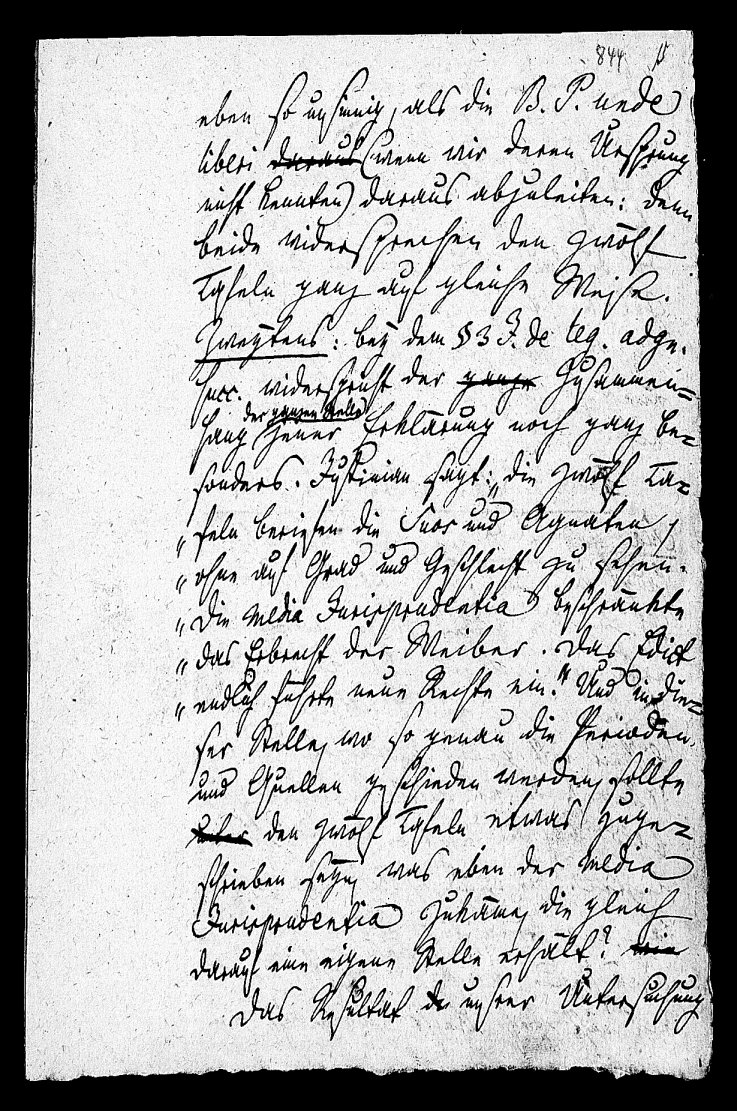 844
eben so unsinnig, als die B. P. unde
liberi daraus (wenn wir deren Ursprung
nicht kennten) daraus abzuleiten: denn
beide widersprechen den zwölf
Tafeln ganz auf gleiche Weise.
Zweytens: bey dem § 3 J. de leg. adgn.
succ. widerspricht der ganze Zusammen-
der ganzen Stelle
hang jener Erklärung noch ganz be-
sonders. Justinian sagt: „die zwölf Ta-
„feln beriefen die Suos und Agnaten,
„ohne auf Grad und Geschlecht zu sehen.
„Die media Jurisprudentia beschränkte
„das Erbrecht der Weiber. Das Edict
„endlich führte neue Rechte ein.“ Und in die-
ser Stelle, wo so genau die Perioden
und Quellen geschieden werden, sollte
unter den zwölf Tafeln etwas zuge-
schrieben seyn, was eben der media
Jurisprudentia zukäme, die gleich
darauf eine eigene Stelle erhält?
Das Resultat der unsrer Untersuchung